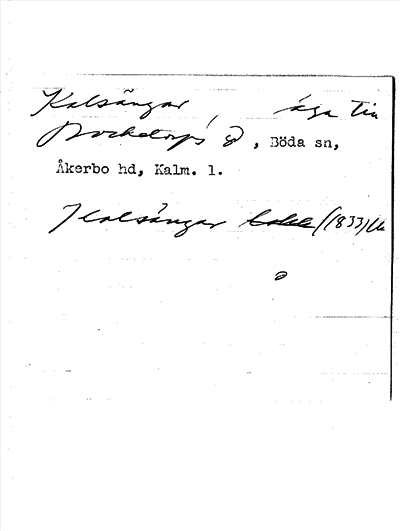 Kalsängar, äga till
Bocketorps ?, Böda sn,
Åkerbo hd, Kalm. l.
Kalsängar (1833)